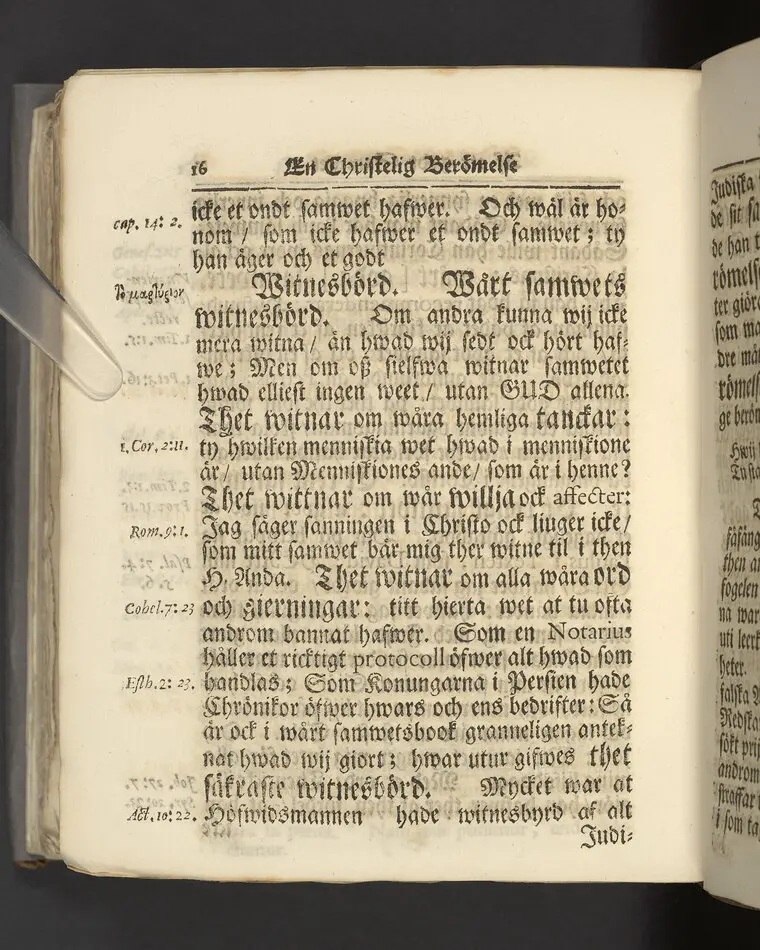 16 En Christelig Berömelse
icke et ondt samwet hafwer. Och wäl är ho⸗
cap. 14: 2.
nom / som icke hafwer et ondt samwet; ty
han äger och et godt
Το μαρτύριον
Witnesbörd. Wårt samwets
witnesbörd. Om andra kunna wij icke
mera witna / än hwad wij sedt och hört haf⸗
we; Men om oß sielfwa witnar samwetet
hwad elliest ingen weet / utan GUD allena.
Thet witnar om wåra hemliga tanckar:
1. Cor. 2:11.
ty hwilken menniskia wet hwad i menniskione
är / utan Menniskiones ande / som är i henne?
Thet wittnar om wår willja och affecter:
Rom. 9: 1.
Jag säger sanningen i Christo och liuger icke /
som mitt samwet bär mig ther witne til i then
H. Anda. Thet witnar om alla wåra ord
Cohel. 7: 23
och gierningar: titt hierta wet at tu ofta
androm bannat hafwer. Som en Notarius
håller et ricktigt protocoll öfwer alt hwad som
Esth. 2: 23.
handlas; Som Konungarna i Persien hade
Chrönikor öfwer hwars och ens bedrifter: Så
är ock i wårt samwetsbook granneligen antek⸗
nat hwad wij giort; hwar utur gifwes thet
säkraste witnesbörd. Mycket war at
Act. 10: 22.
Höfwidsmannen hade witnesbyrd af alt
Judi⸗
Judiska